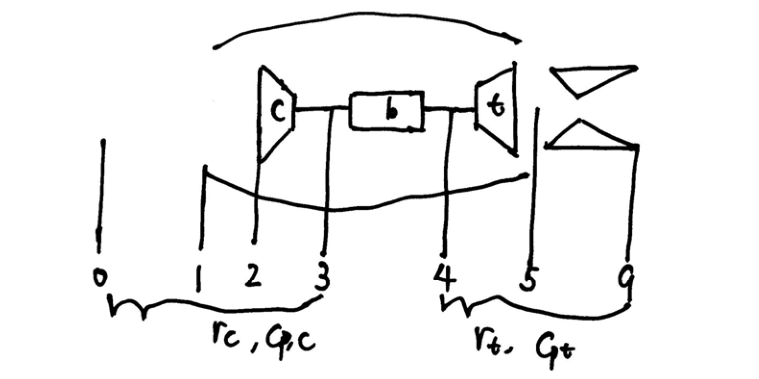 c b t
0 1 2 3 4 5 9
rc, Cp,c rt, Cpt